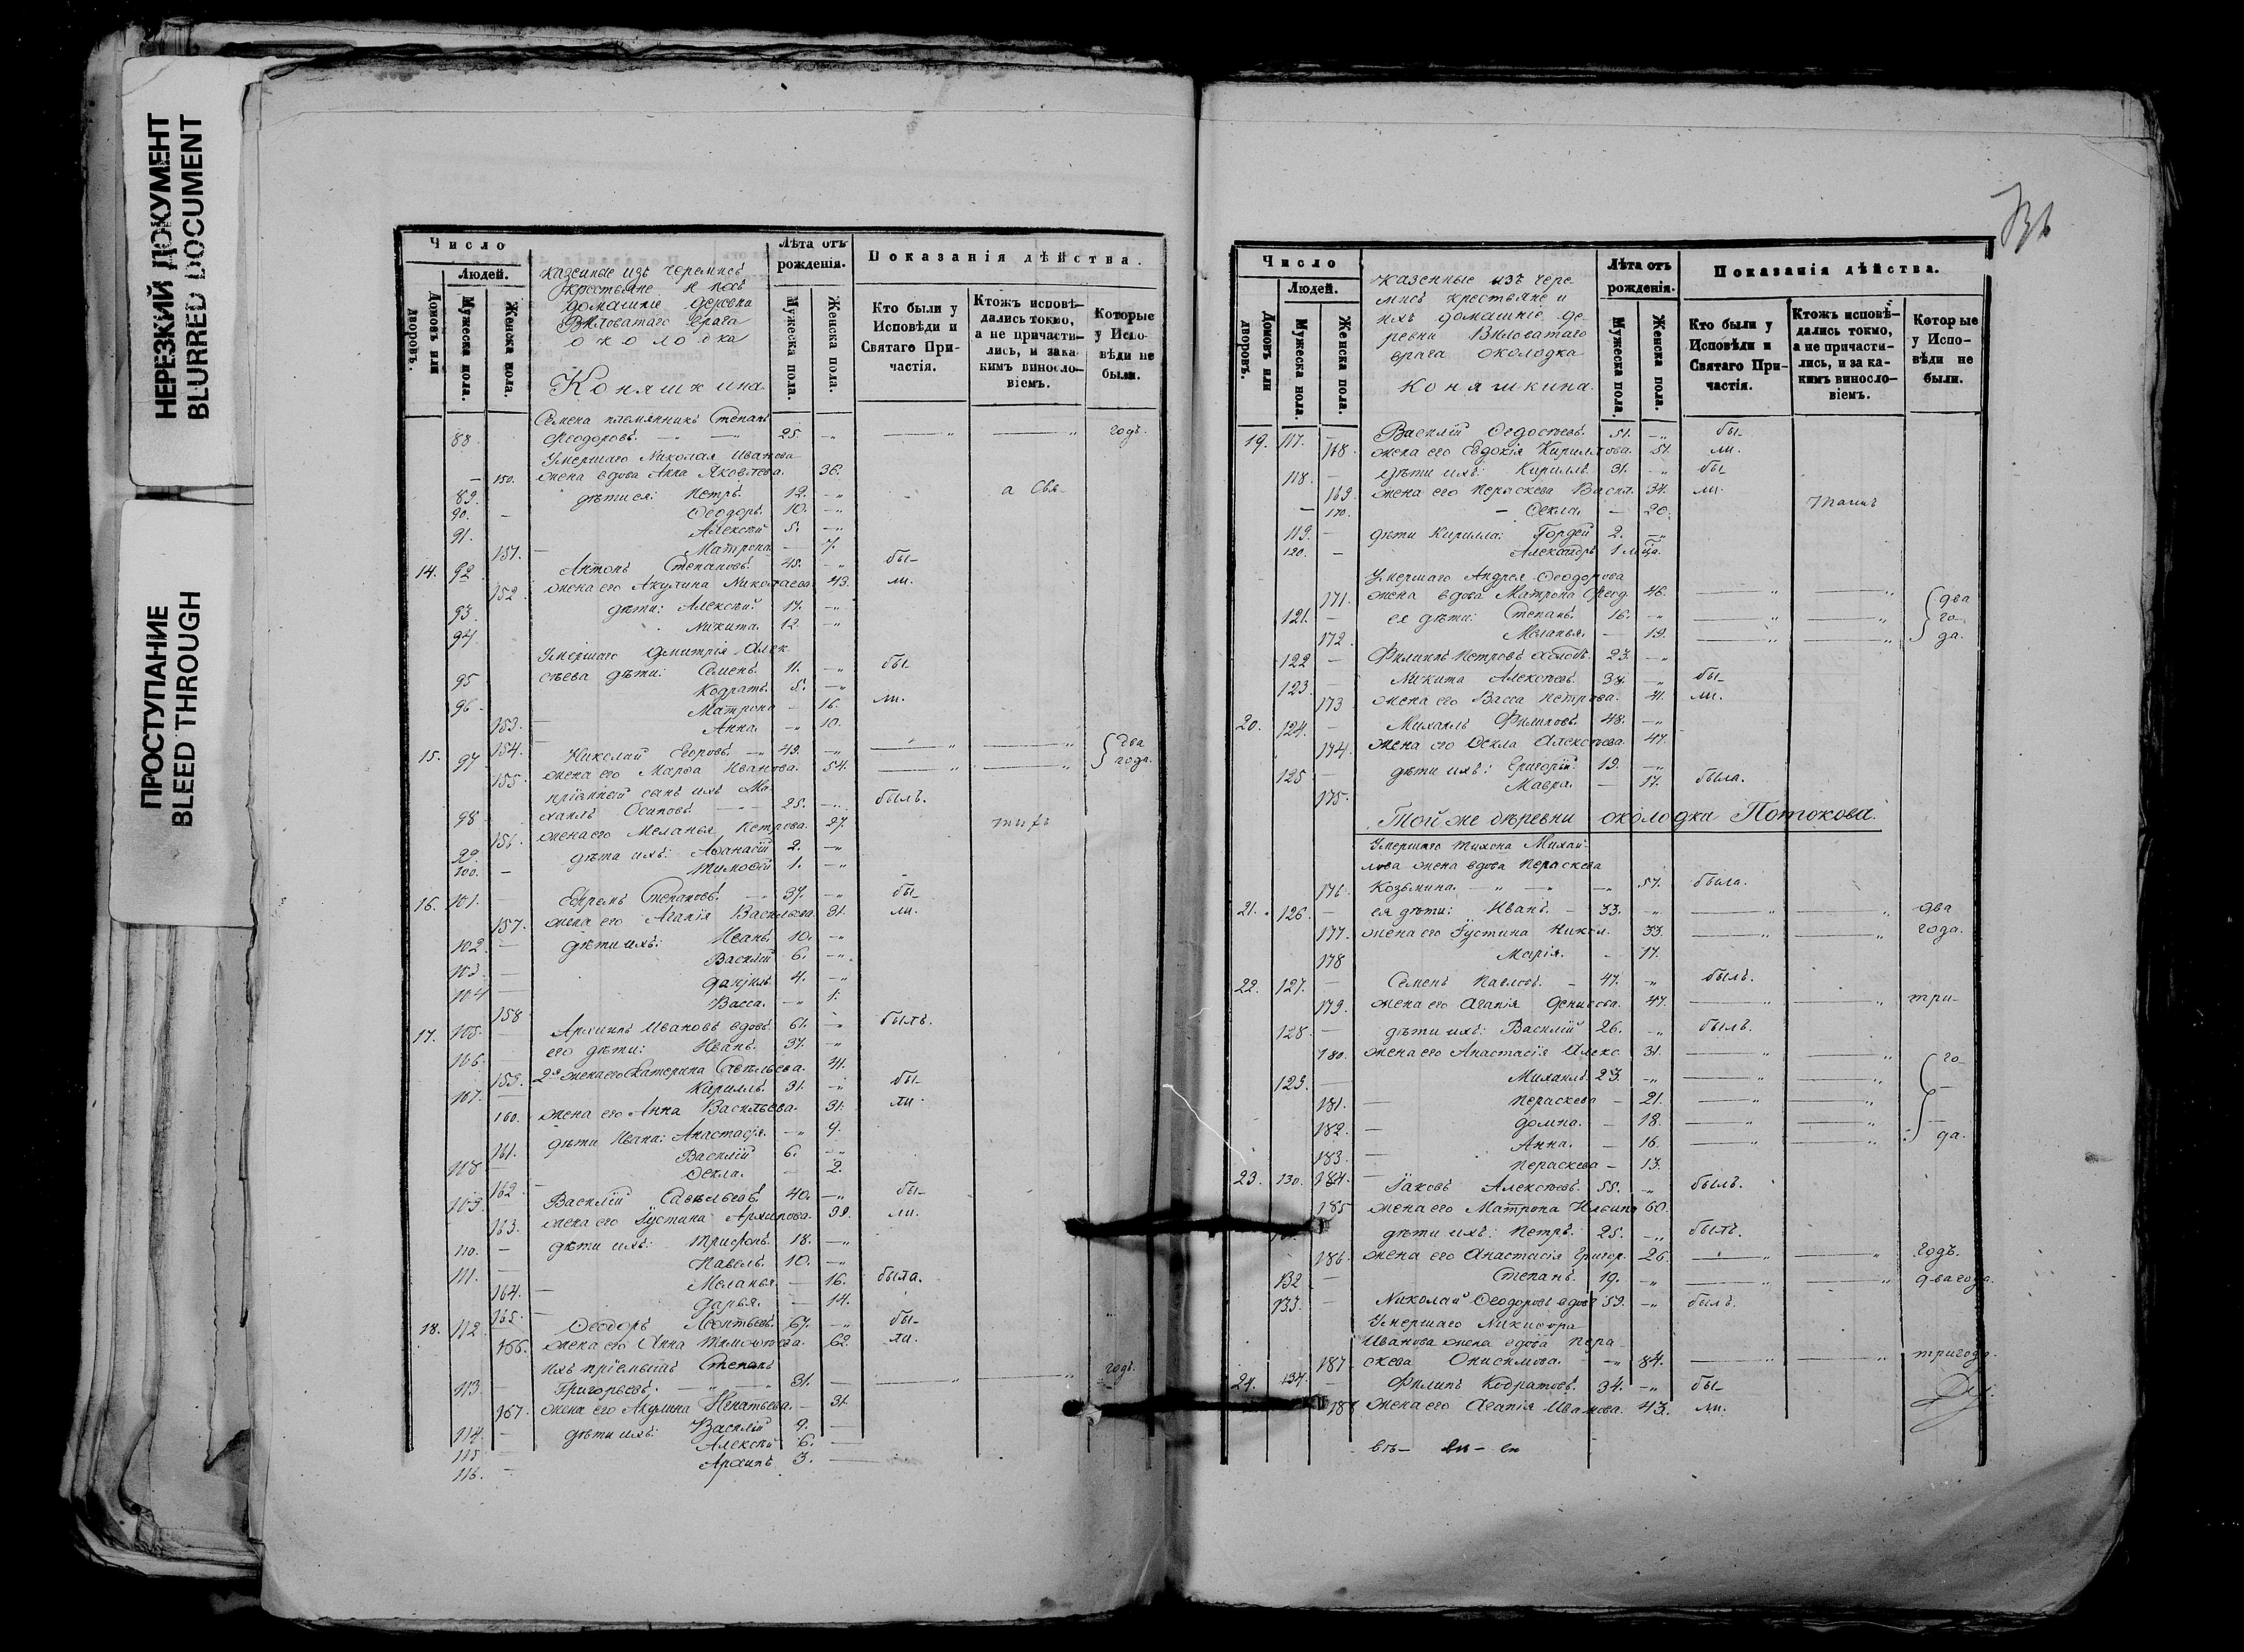 НЕРЕЗКИЙ ДОКУМЕНТ
BLURRED DOCUMENT
ПРОСТУПАНИЕ
BLEED THROUGH
Число
Людей.
Домовъ или дворовъ.
Мужеска пола.
Женска пола.
казенные изъ черемисъ
крестьяне и ихъ
домашніе деревни
Виловатаго врага
околодка
Коняшкина
Лѣта отъ рожденія.
Мужеска пола.
Женска пола.
Показанія дѣйства.
Кто были у Исповѣди и Святаго Причастія.
Ктожъ исповѣдались токмо, а не причастились, и за какимъ винословіемъ.
Которые у Исповѣди не были.
Семена племянникъ Степанъ
88. Феодоровъ. 25. годъ.
Умершаго Николая Иванова
150. жена вдова Анна Яковлева. 36.
89. дѣти ея: Петръ. 12.
90. Ѳеодоръ. 10.
91. Алексѣй 5.
151. Матрона 7.
14. 92. Антонъ Степановъ. 45. бы-
152. жена его Акулина Николаева. 43. ли.
93. дѣти: Алексѣй. 17.
94. Никита. 12
Умершаго Дмитрія Алек
95 сѣева дѣти: Семенъ. 11. бы-
96. Кодратъ. 5.
153. Матрона 16. ли.
154. Анна. 10.
15. 97 Николай Егоровъ. 49. два
155. жена его Марфа Иванова. 54. года.
пріемный сынъ ихъ Ми-
98. хаилъ Осиповъ 25. былъ.
156. жена его Меланья Петрова. 27.
99. дѣти ихъ: Аѳанасій 2.
100. Тимоѳей 1.
16. 101. Ефремъ Степановъ. 37. бы-
157. жена его Агапія Васильева. 31. ли.
102. дѣти ихъ: Иванъ. 10.
103. Василій 6.
104 Даніилъ. 4.
158 Васса. 1.
17. 105. Архипъ Ивановъ вдовъ. 61. былъ.
106. его дѣти: Иванъ. 37.
159. 2я жена его Екатерина Савельева. 41.
107. Кириллъ. 31. бы-
160. жена его Анна Васильева. 31. ли.
161. дѣти Ивана: Анастасія. 9.
108 Василій 6.
162. Ѳекла. 2.
109. Василій Савельевъ. 40. бы-
163. жена его Іустина Архипова. 39. ли.
110. дѣти ихъ: Трифонъ. 18.
111. Павелъ. 10.
164. Меланья. 16. была.
165. Дарья. 14.
18. 112. Ѳеодоръ Леонтьевъ. 67. бы-
166. жена его Анна Тимоѳеева. 62. ли.
ихъ пріемышъ Степанъ
113. Григорьевъ. 31. годъ.
167. жена его Акулина Игнатьева. 31.
114. дѣти ихъ: Василій 9.
115 Алексѣй 6.
116. Архипъ 3.
Число
Людей.
Домовъ или дворовъ.
Мужеска пола.
Женска пола.
казенные изъ чере
мисъ крестьяне и
ихъ домашніе де-
ревни Виловатаго
врага околодка
Коняшкина.
Лѣта отъ рожденія.
Мужеска пола.
Женска пола.
Показанія дѣйства.
Кто были у Исповѣди и Святаго Причастія.
Ктожъ исповѣдались токмо, а не причастились, и за какимъ винословіемъ.
Которые у Исповѣди не были.
19. 117. Василій Ѳедосѣевъ. 51. бы-
168. жена его Евдокія Кириллова. 51. ли.
118. дѣти ихъ: Кириллъ. 31. бы
169. жена его Параскева Васил. 34. ли.
170. Ѳекла. 20.
119. дѣти Кирилла: Гордей 2.
120. Александръ 1 мца.
Умершаго Андрея Ѳеодорова
171. жена вдова Матрона Ѳеод. 46. два
121. ея дѣти: Степанъ. 16. го-
172. Меланья. 19. да.
122 Филиппъ Петровъ 23.
123. Никита Алексѣевъ. 38. бы-
173. жена его Васса Петрова. 41. ли.
20. 124. Михаилъ Филиповъ. 48.
174. жена его Ѳекла Алексѣева. 47.
125 дѣти ихъ: Григорій. 19.
175. Мавра. 17. была.
Той же деревни околодки Потокова.
Умершаго Тихона Михай-
лова жена вдова Параскева
176. Козьмина. 57. была.
21. 126. ея дѣти: Иванъ. 33. два
177. жена его Іустина Никол. 33. года.
178 Марія. 17.
22. 127. Семенъ Павловъ. 47. былъ.
179. жена его Агапія Денисова. 47. три-
128 дѣти ихъ: Василій 26. былъ.
180. жена его Анастасія Алекс. 31. го-
129. Михаилъ. 23.
181. Параскева 21.
182. Домна. 18.
183. Анна. 16. да.
184. Параскева 13.
23. 130. Іаковъ Алексѣевъ. 55. былъ.
185 жена его Матрона Ильина 60.
дѣти ихъ: Петръ. 25. былъ.
186. жена его Анастасія Григор. 26. годъ.
132 Степанъ. 19. два года.
133. Николай Ѳеодоровъ вдовъ 59. былъ.
Умершаго Никифора
Иванова жена вдова Пара-
187 скева Онисимова. 84. три года.
24. 134. Филипъ Кодратовъ. 34. бы-
188 жена его Агапія Иванова. 43. ли.